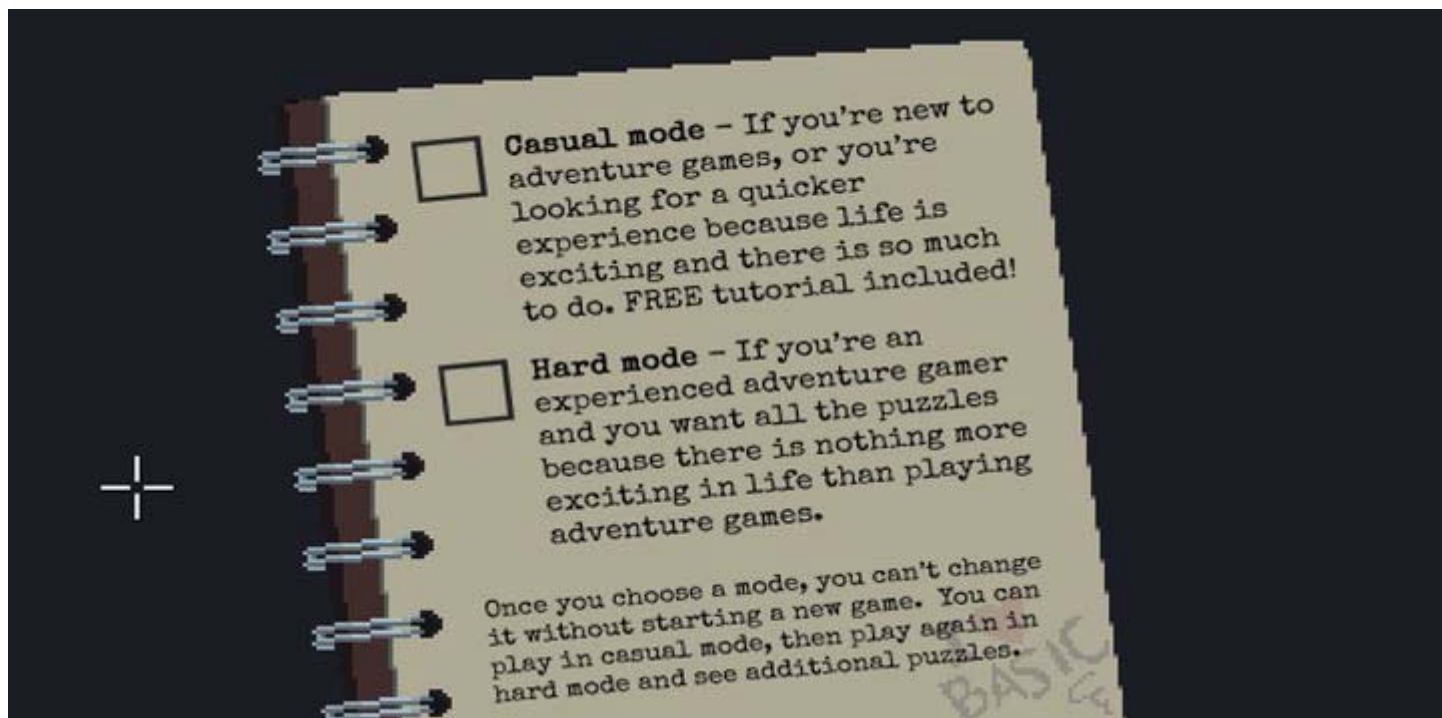 Casual mode – If you're new to
adventure games, or you're
looking for a quicker
experience because life is
exciting and there is so much
to do. FREE tutorial included!
Hard mode – If you're an
experienced adventure gamer
and you want all the puzzles
because there is nothing more
exciting in life than playing
adventure games.
Once you choose a mode, you can't change
it without starting a new game. You can
play in casual mode, then play again in
hard mode and see additional puzzles.
I ♥
BASIC